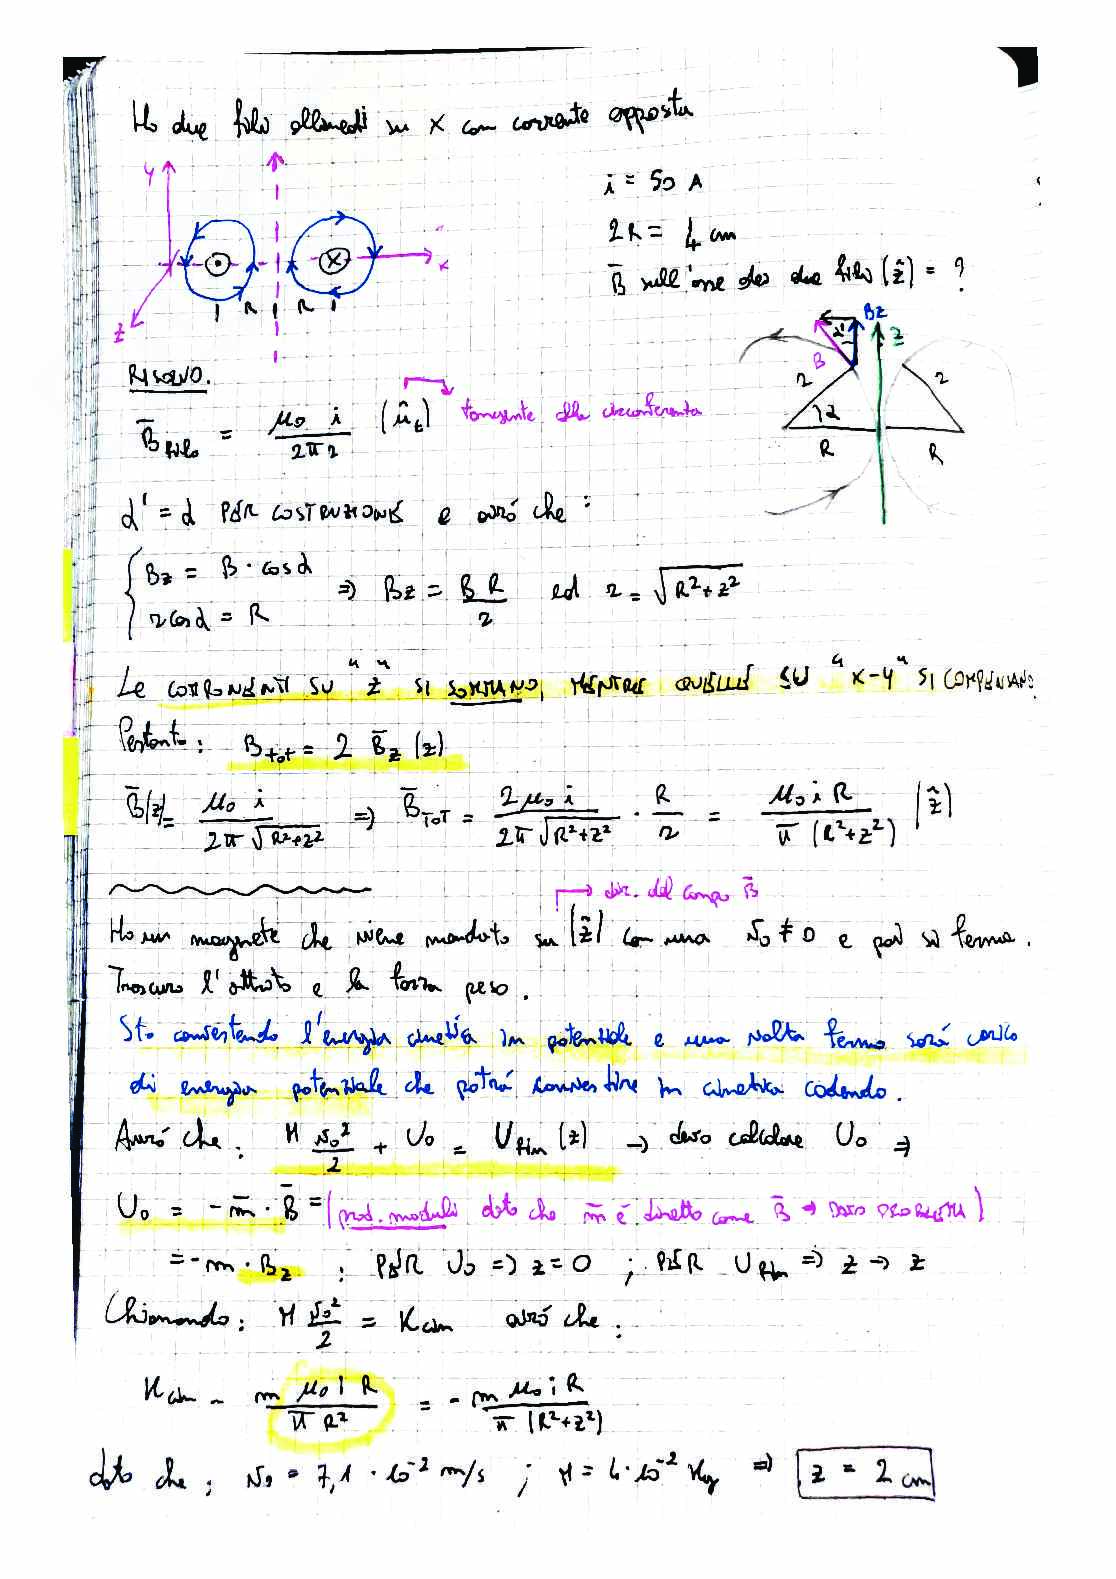 Ho due fili allineati su x con corrente opposta
y
x
z
R
R
i = 50 A
2R = 4 cm
B̄ sull'asse dei due fili (ẑ) = ?
Bz
α'
z
B
r
r
α
R
R
RISOLVO.
B̄filo = μ₀ i / 2π r (û_t) tangente alla circonferenza
α' = α PER COSTRUZIONE e avró che :
{ Bz = B · cosα
r cosα = R
=> Bz = B R / r ed r = √(R²+z²)
Le COMPONENTI SU "z" SI SOMMANO, MENTRE QUELLE SU "x-y" SI COMPENSANO
Pertanto : B tot = 2 B̄z (z)
B̄(z) = μ₀ i / 2π √(R²+z²) => B̄TOT = 2μ₀ i / 2π √(R²+z²) · R / r = μ₀ i R / π (R²+z²) (ẑ)
dir. del campo B̄
Ho un magnete che viene mandato su (ẑ) con una v₀ ≠ 0 e poi si ferma.
Trascuro l'attrito e la forza peso.
Sto convertendo l'energia cinetica in potenziale e una volta fermo sará carico
di energia potenziale che potrá convertire in cinetica cadendo.
Avró che : M v₀² / 2 + U₀ = Ufin (z) → devo calcolare U₀ =>
U₀ = - m̄ · B̄ = (prod. moduli dato che m̄ é diretto come B̄ → DATO PROBLEMA)
= - m · Bz ; PER U₀ => z = 0 ; PER Ufin => z → z
Chiamando : M v₀² / 2 = Kcin avró che :
Kcin - m μ₀ i R / π R² = - m μ₀ i R / π (R²+z²)
dato che ; v₀ = 7,1 · 10⁻² m/s ; M = 4 · 10⁻² Kg => z = 2 cm